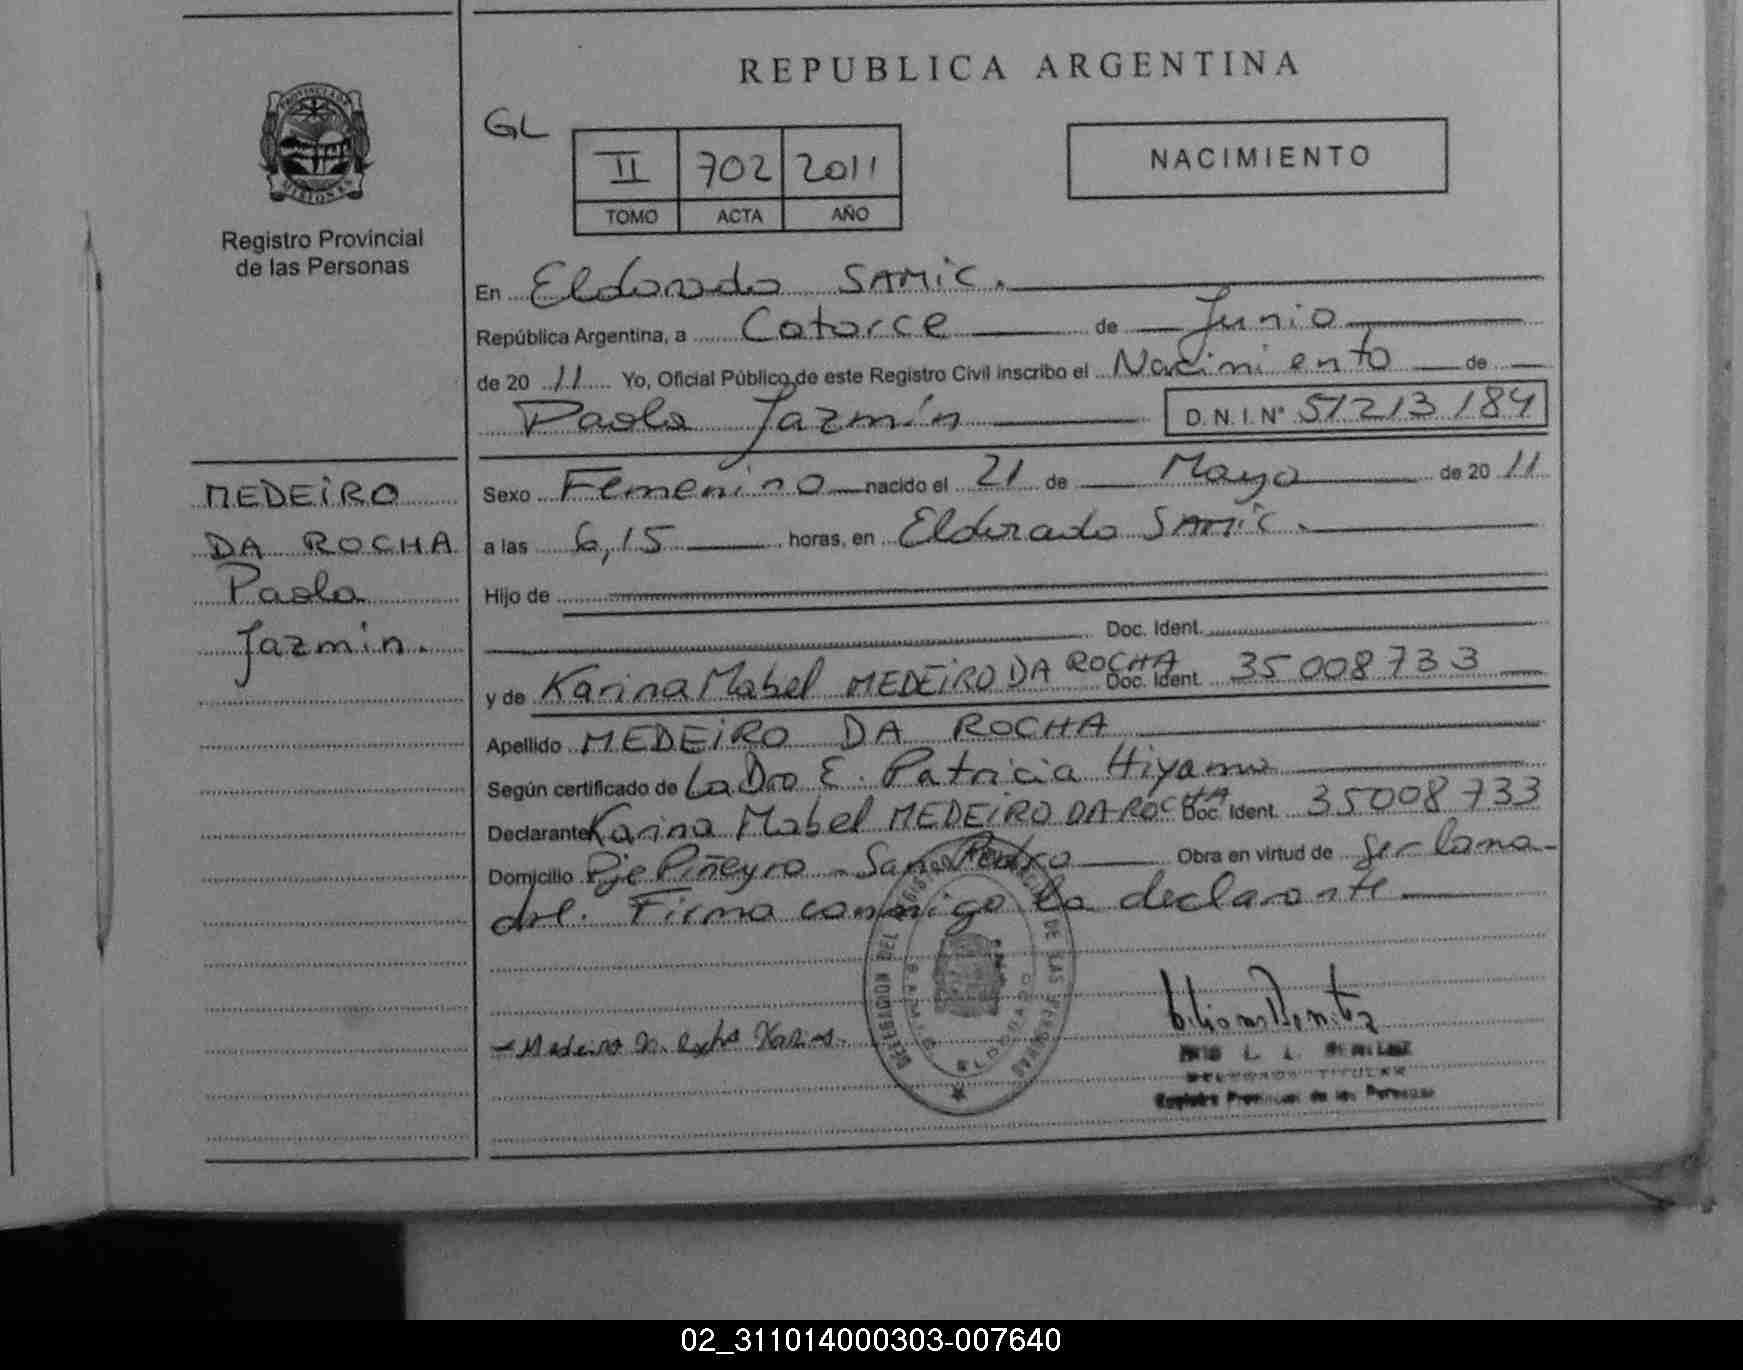 REPUBLICA ARGENTINA
GL
II 702 2011
TOMO ACTA AÑO
NACIMIENTO
PROVINCIA DE MISIONES
Registro Provincial
de las Personas
En Eldorado SAMIC.
República Argentina, a Catorce de Junio
de 20 11 Yo, Oficial Público de este Registro Civil inscribo el Nacimiento de
Paola Jazmín D. N. I. N° 51213184
MEDEIRO
DA ROCHA
Paola
Jazmín.
Sexo Femenino nacido el 21 de Mayo de 20 11
a las 6,15 horas, en Eldorado SAMIC.
Hijo de
Doc. Ident.
y de Karina Mabel MEDEIRO DA ROCHA Doc. Ident. 35 008 733
Apellido MEDEIRO DA ROCHA
Según certificado de La Dra E. Patricia
Declarante Karina Mabel MEDEIRO DA ROCHA Doc. Ident. 35008733
Domicilio Pje Piñeyro - San Pedro Obra en virtud de ser la ma-
dre. Firma conmigo la declarante
Medeiro Da Rocha Karina.
DELEGADO TITULAR
Registro Provincial de las Personas
02_311014000303-007640